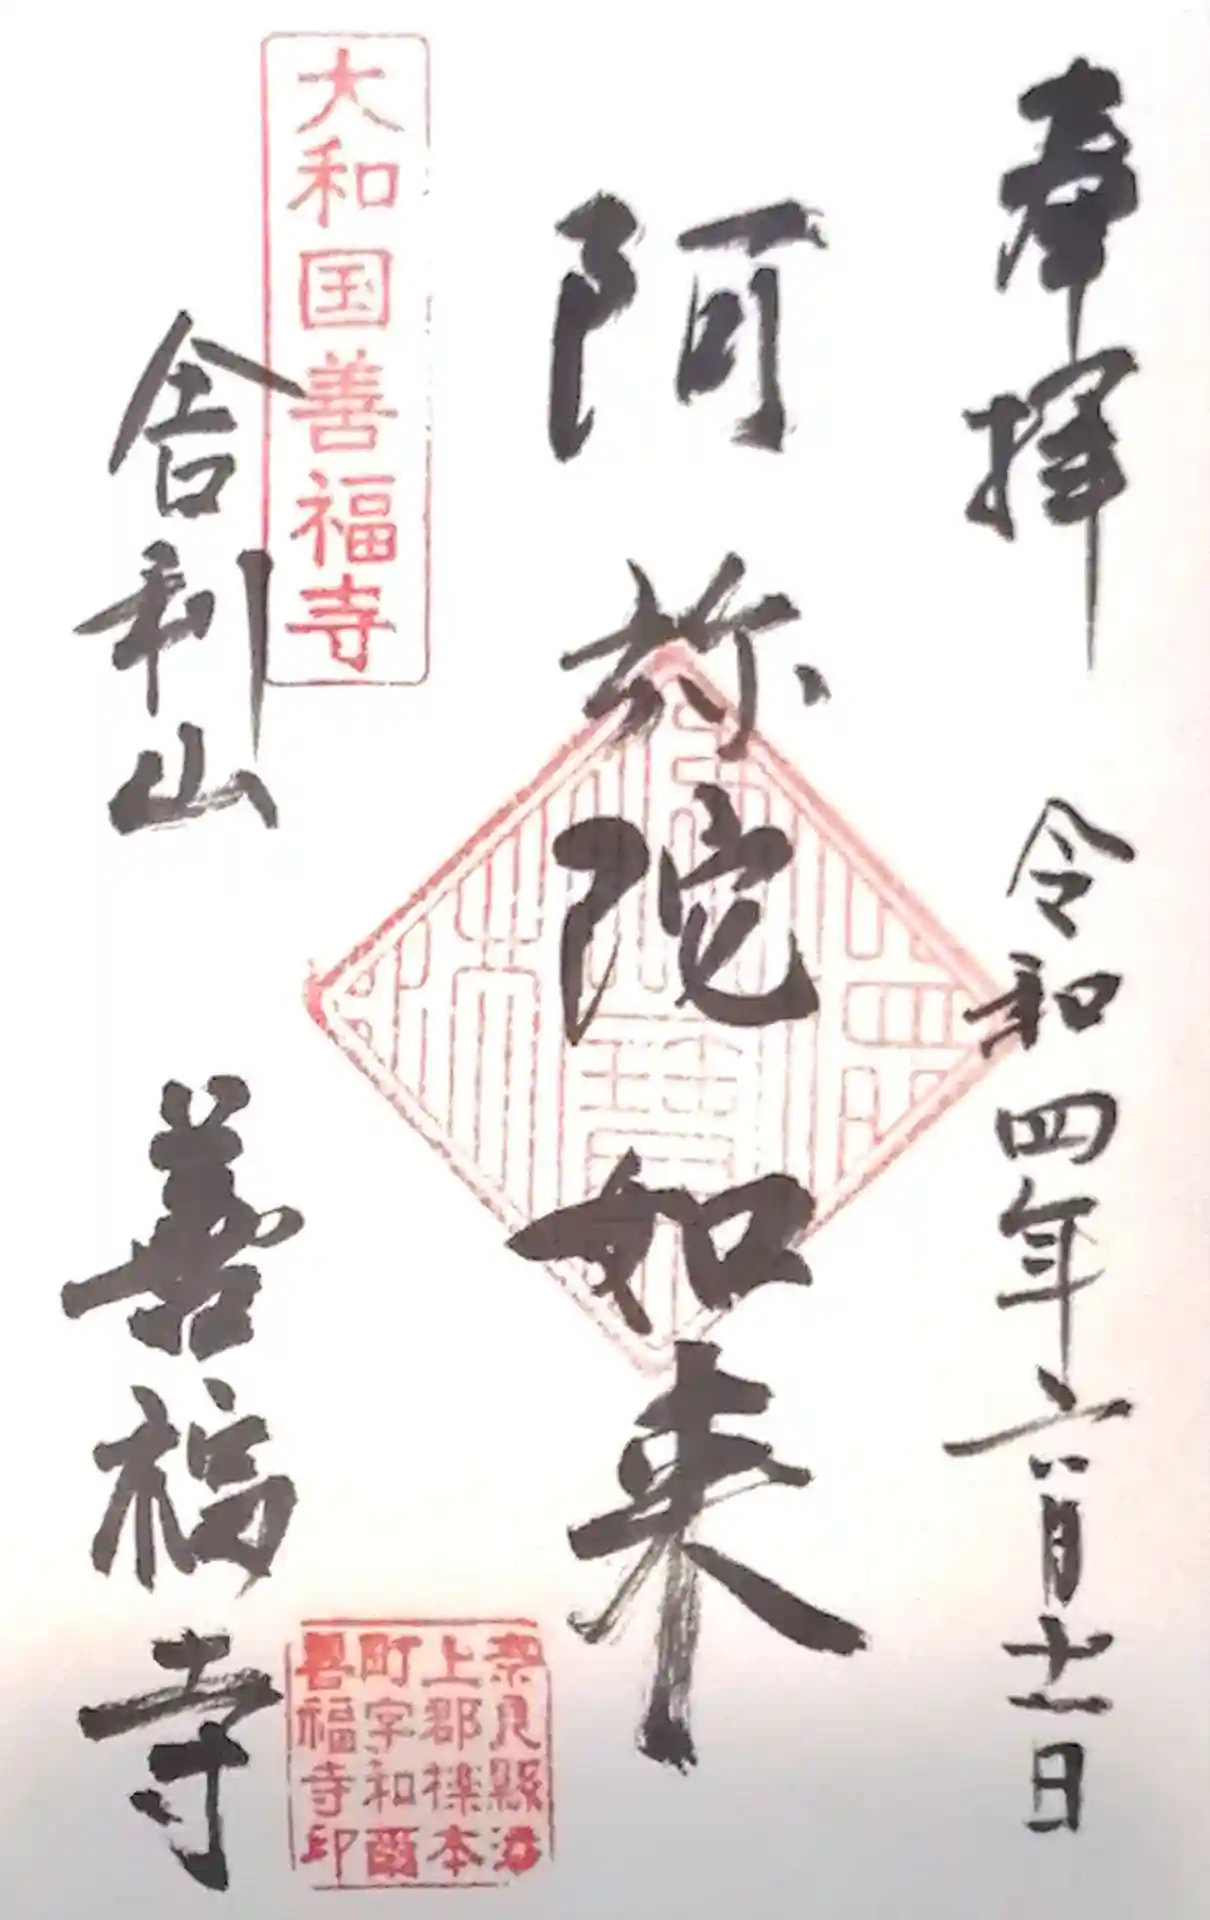 奉拝 令和四年六月十一日
阿弥陀如来
大和国善福寺
舎利山 善福寺
奈良縣添
上郡櫟本
町字和爾
善福寺印